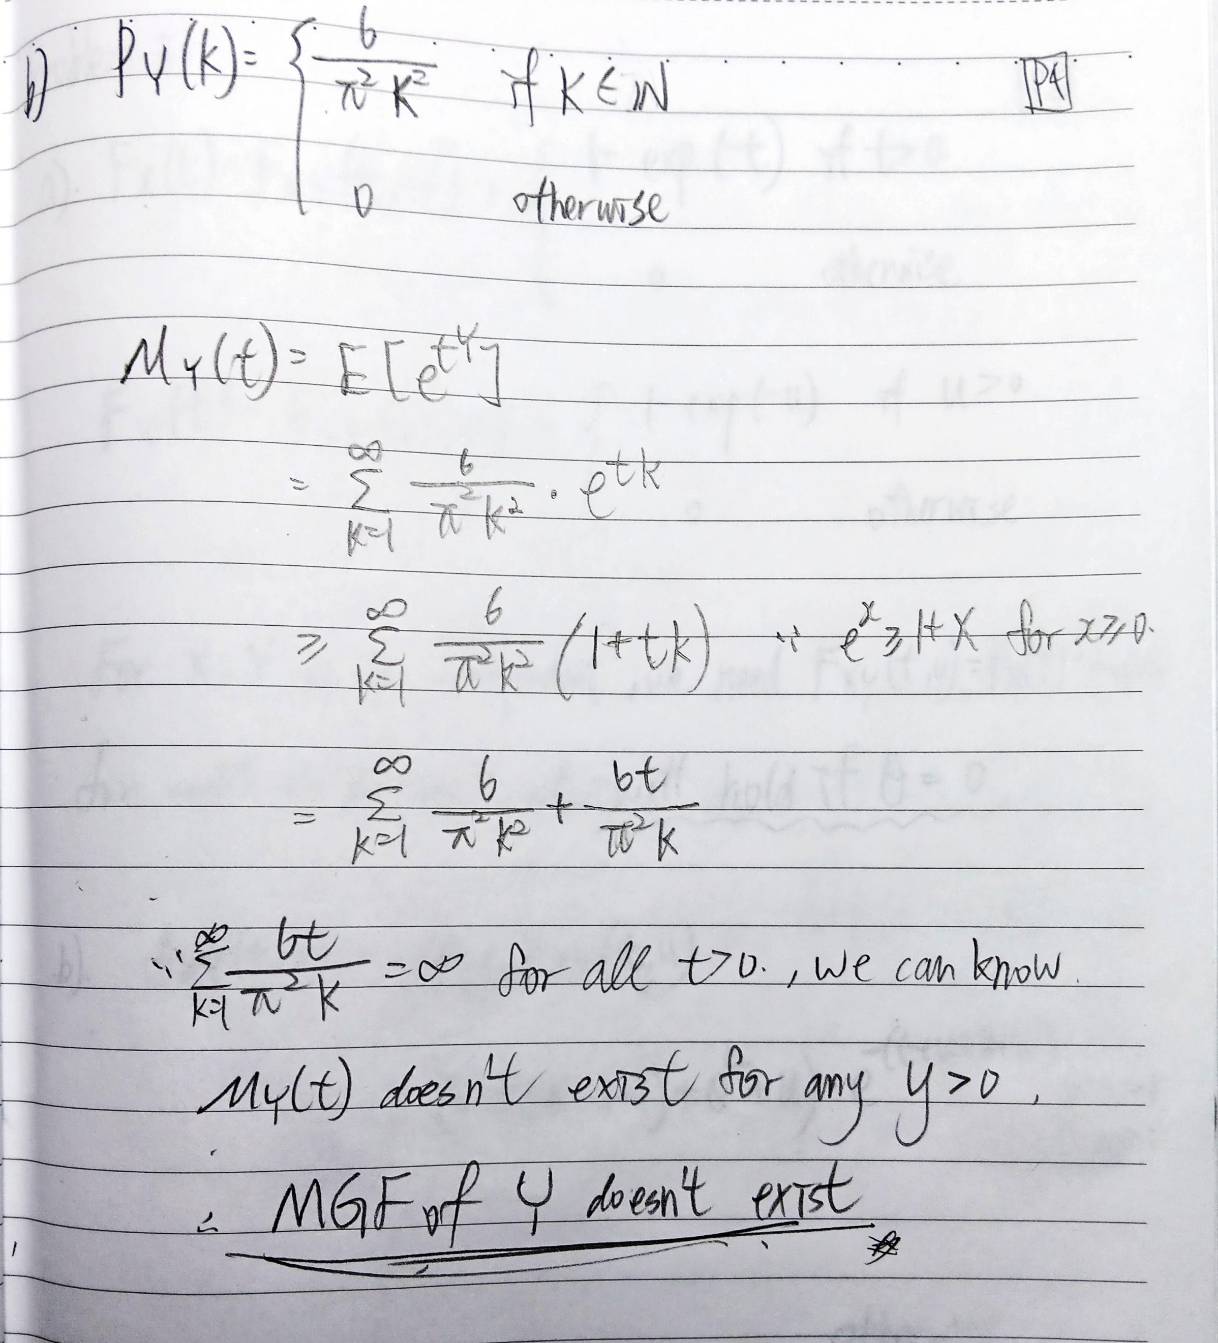 b) P_Y(k) = { 6/(π²k²) if k ∈ ℕ
P4
0 otherwise
M_Y(t) = E[e^{tY}]
= ∑_{k=1}^{∞} 6/(π²k²) · e^{tk}
≥ ∑_{k=1}^{∞} 6/(π²k²) (1+tk) ∵ e^x ≥ 1+x for x ≥ 0.
= ∑_{k=1}^{∞} 6/(π²k²) + 6t/(π²k)
∵ ∑_{k=1}^{∞} 6t/(π²k) = ∞ for all t>0., we can know.
M_Y(t) doesn't exist for any y>0,
∴ MGF of Y doesn't exist